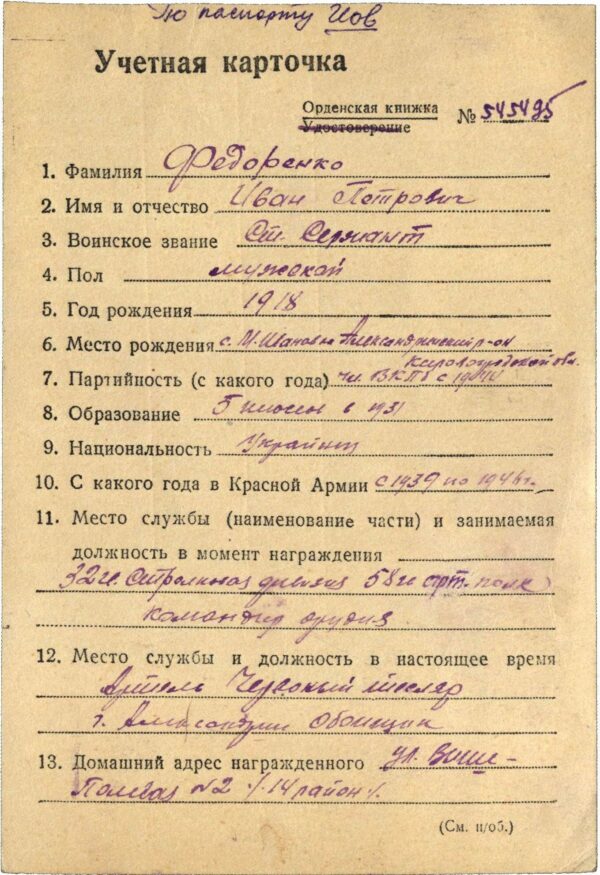 По паспорту Иов
Учетная карточка
Орденская книжка
Удостоверение
№ 545495
1. Фамилия Федоренко
2. Имя и отчество Иван Петрович
3. Воинское звание Ст. Сержант
4. Пол мужской
5. Год рождения 1918
6. Место рождения с. М. Александрийский р-он
Кировоградской обл.
7. Партийность (с какого года) чл. ВКПб с 1944
8. Образование 5 классов в 1931
9. Национальность Украинец
10. С какого года в Красной Армии с 1939 по 1946 г.
11. Место службы (наименование части) и занимаемая
должность в момент награждения
32 гв. Стрелковая дивизия 58 гв арт. полк
командир орудия
12. Место службы и должность в настоящее время
Артель Червоный тесляр
г. Александрия
13. Домашний адрес награжденного ул.
№2 14 район
(См. н/об.)